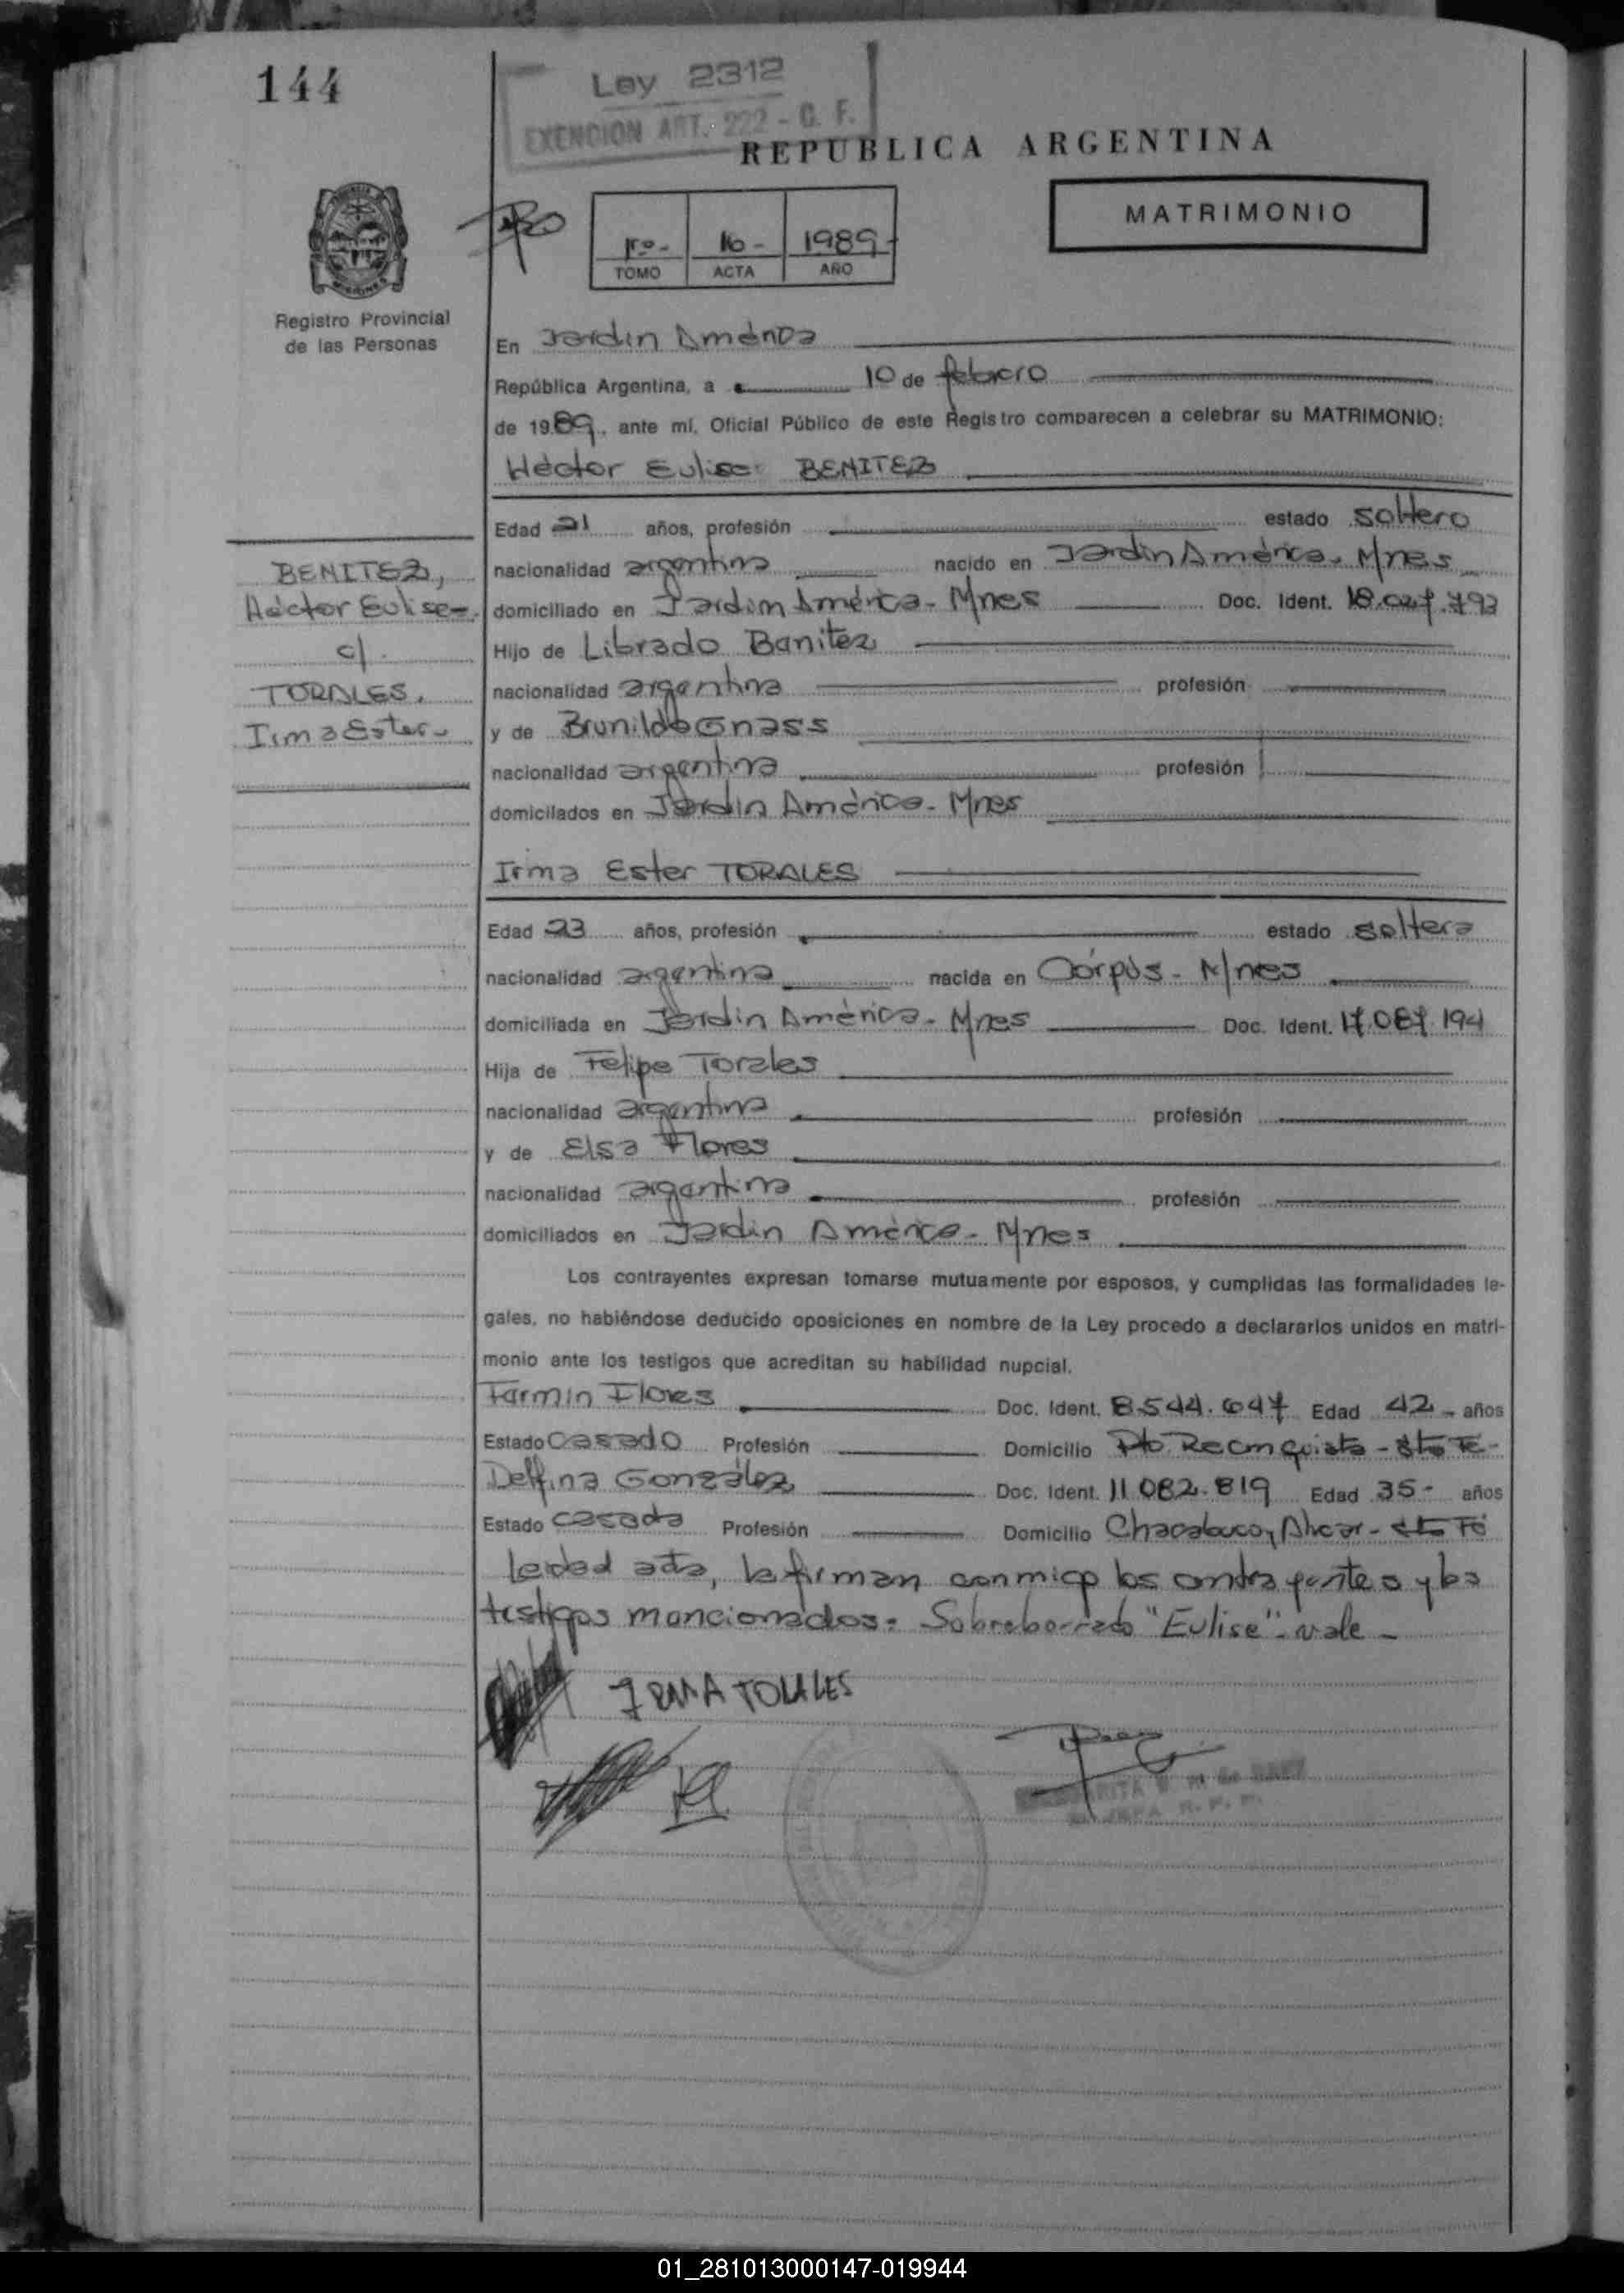 144
Ley 2312
EXENCION ART. 222 - C. F.
REPUBLICA ARGENTINA
MATRIMONIO
1ro- 16- 1989-
TOMO ACTA AÑO
Registro Provincial
de las Personas
En Jardin América
República Argentina, a 10 de febrero
de 1989, ante mí, Oficial Público de este Registro comparecen a celebrar su MATRIMONIO:
Héctor Eulise BENITEZ
Edad 21 años, profesión estado soltero
nacionalidad argentina nacido en Jardin América. Mnes
domiciliado en Jardim América - Mnes Doc. Ident. 18.027.793
Hijo de Librado Benitez
nacionalidad argentina profesión
y de Brunilda Gnass
nacionalidad argentina profesión
domicilados en Jardin América - Mnes
BENITEZ,
Héctor Eulise-
c/.
TORALES.
Irma Ester-
Irma Ester TORALES
Edad 23 años, profesión estado soltera
nacionalidad argentina nacida en Córpus - Mnes
domiciliada en Jardin América - Mnes Doc. Ident. 17.087.194
Hija de Felipe Torales
nacionalidad argentina profesión
y de Elsa Flores
nacionalidad argentina profesión
domiciliados en Jardin América - Mnes
Los contrayentes expresan tomarse mutuamente por esposos, y cumplidas las formalidades le-
gales, no habiéndose deducido oposiciones en nombre de la Ley procedo a declararlos unidos en matri-
monio ante los testigos que acreditan su habilidad nupcial.
Farmin Flores Doc. Ident. 8.544.647 Edad 42 - años
Estado casado Profesión Domicilio Pto Reconquista - Sta Fe -
Delfina González Doc. Ident. 11 082.819 Edad 35- años
Estado casada Profesión Domicilio Chacabuco y Alvear - Sta Fé
leidad acta, la firman conmigo los contrayentes y los
testigos mencionados: Sobreborrado "Eulise" - vale -
IRMA TORALES
R. P. P.
01_281013000147-019944